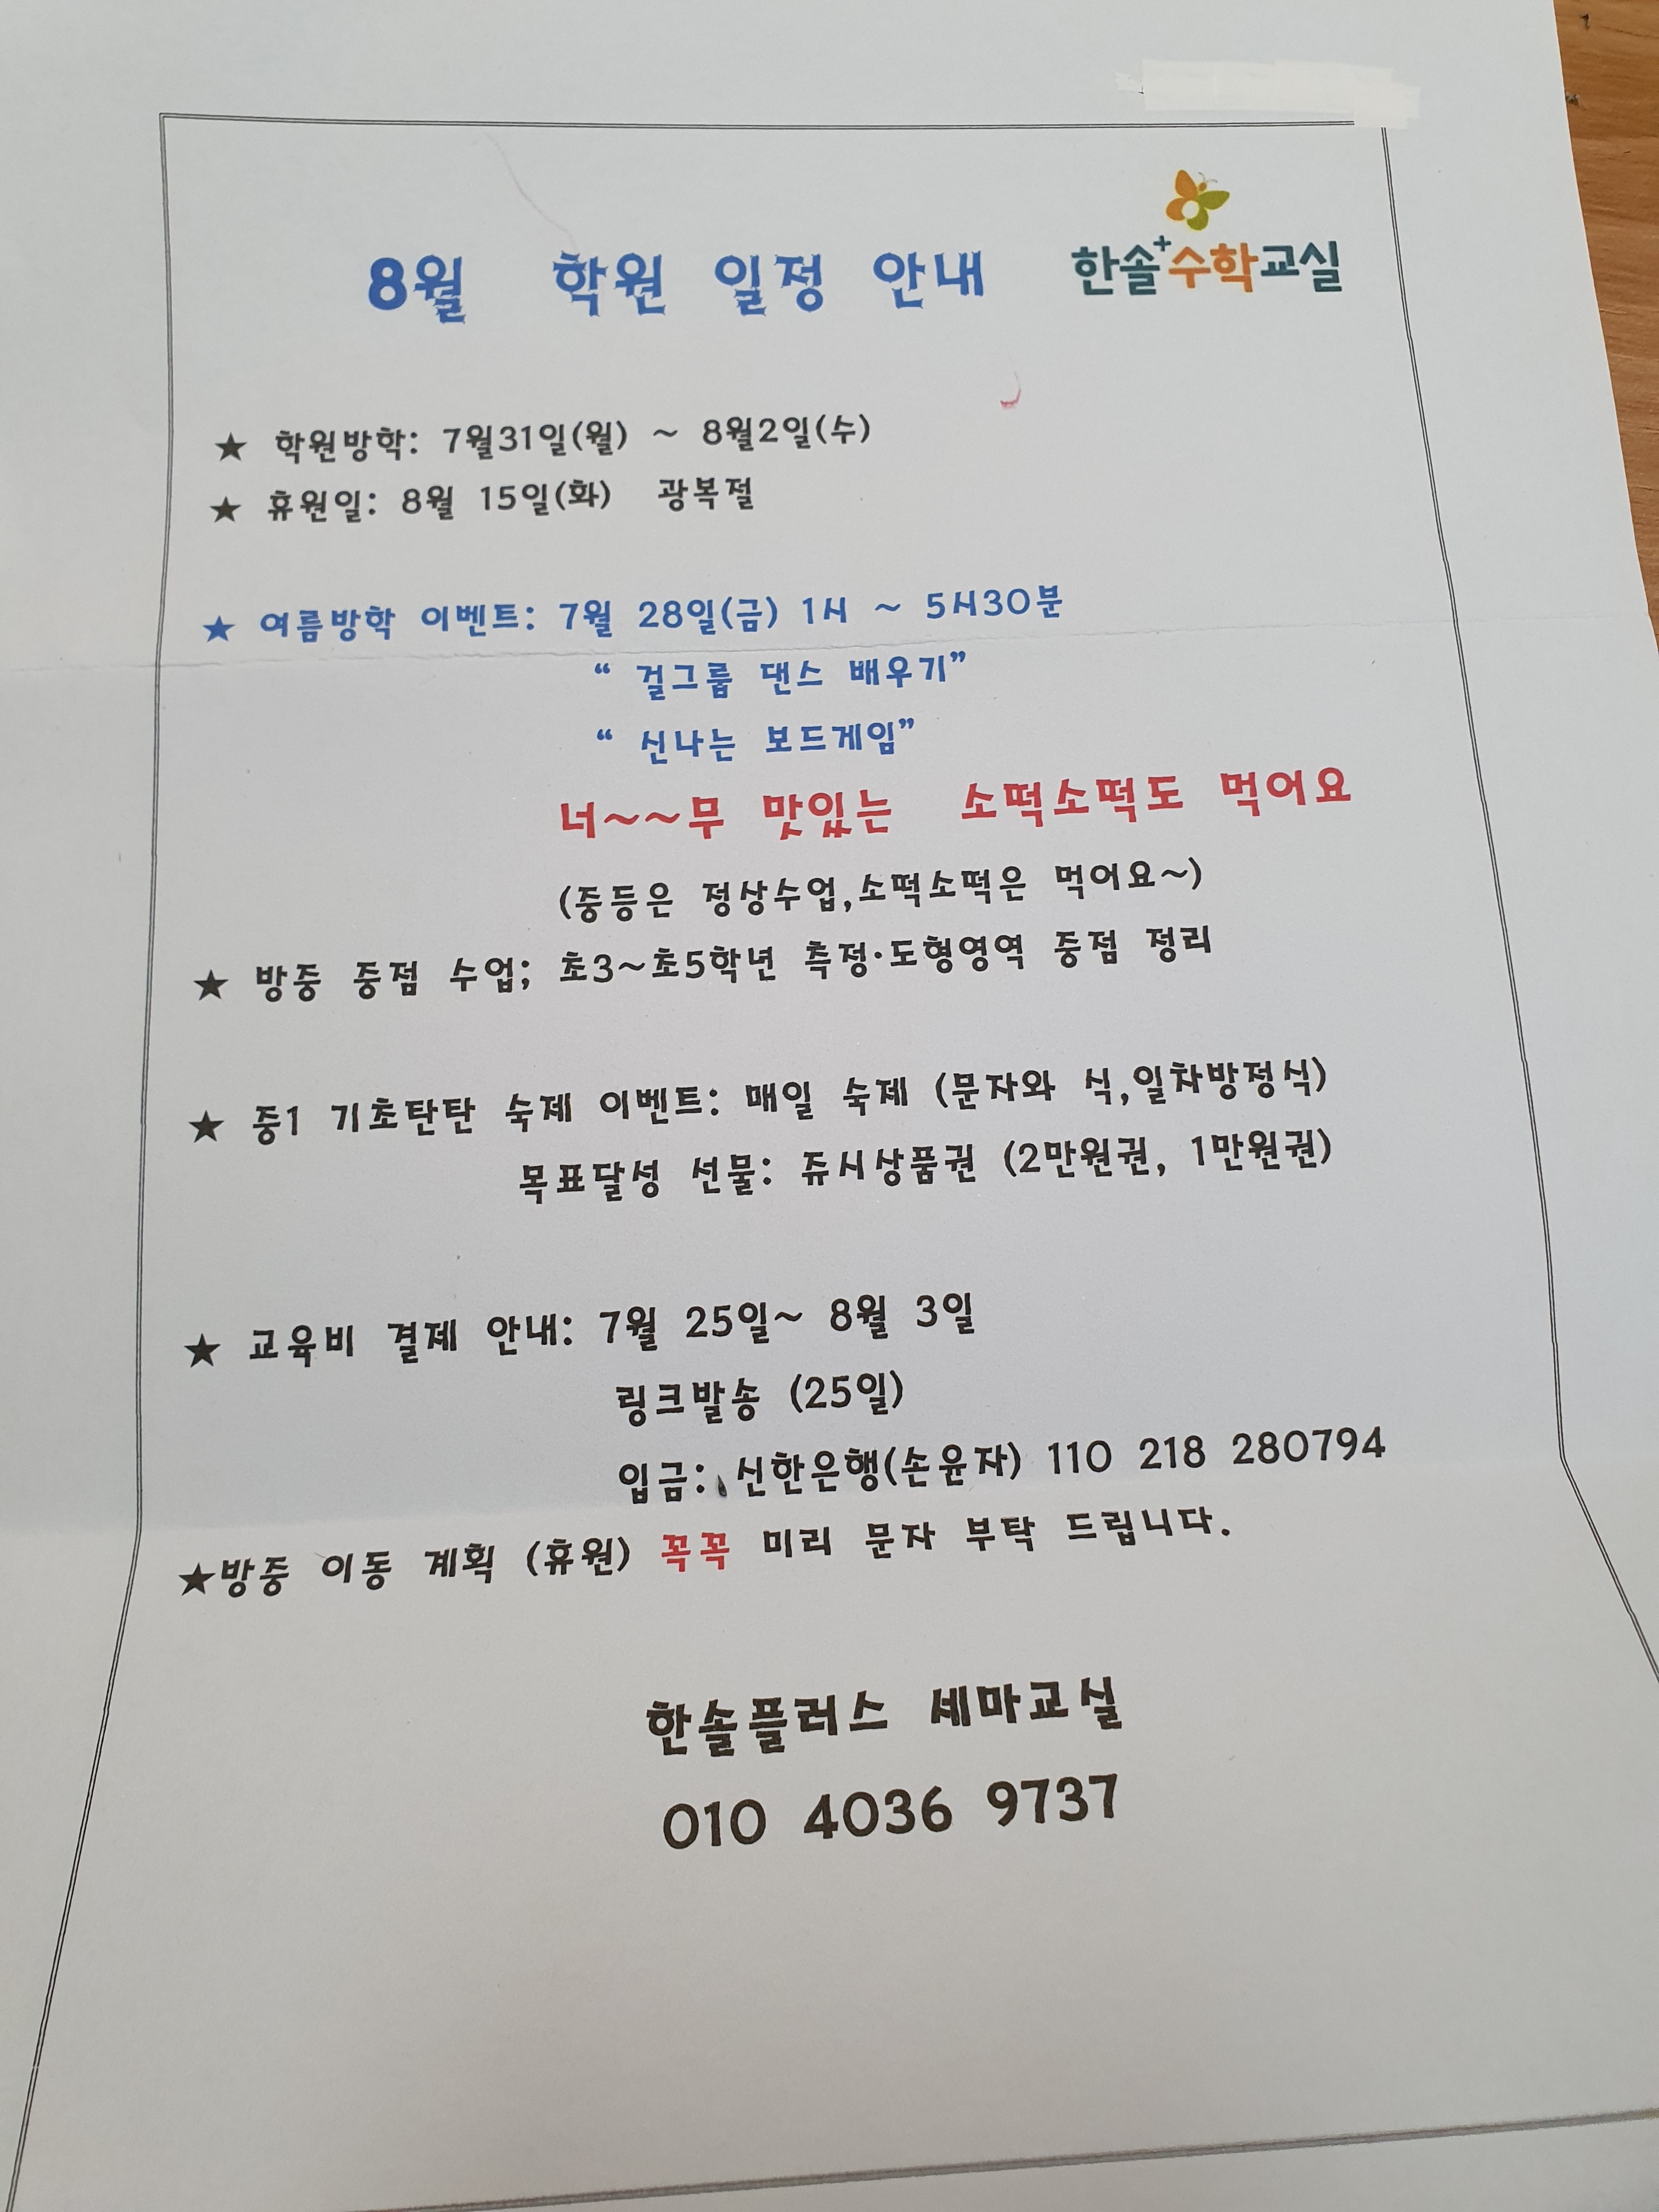 8월 학원 일정 안내 한솔+수학교실
★ 학원방학: 7월31일(월) ~ 8월2일(수)
★ 휴원일: 8월 15일(화) 광복절
★ 여름방학 이벤트: 7월 28일(금) 1시 ~ 5시30분
“ 걸그룹 댄스 배우기”
“ 신나는 보드게임”
너~~무 맛있는 소떡소떡도 먹어요
(중등은 정상수업,소떡소떡은 먹어요~)
★ 방중 중점 수업; 초3~초5학년 측정·도형영역 중점 정리
★ 중1 기초탄탄 숙제 이벤트: 매일 숙제 (문자와 식,일차방정식)
목표달성 선물: 쥬시상품권 (2만원권, 1만원권)
★ 교육비 결제 안내: 7월 25일~ 8월 3일
링크발송 (25일)
입금: 신한은행(손윤자) 110 218 280794
★방중 이동 계획 (휴원) 꼭꼭 미리 문자 부탁 드립니다.
한솔플러스 세마교실
010 4036 9737